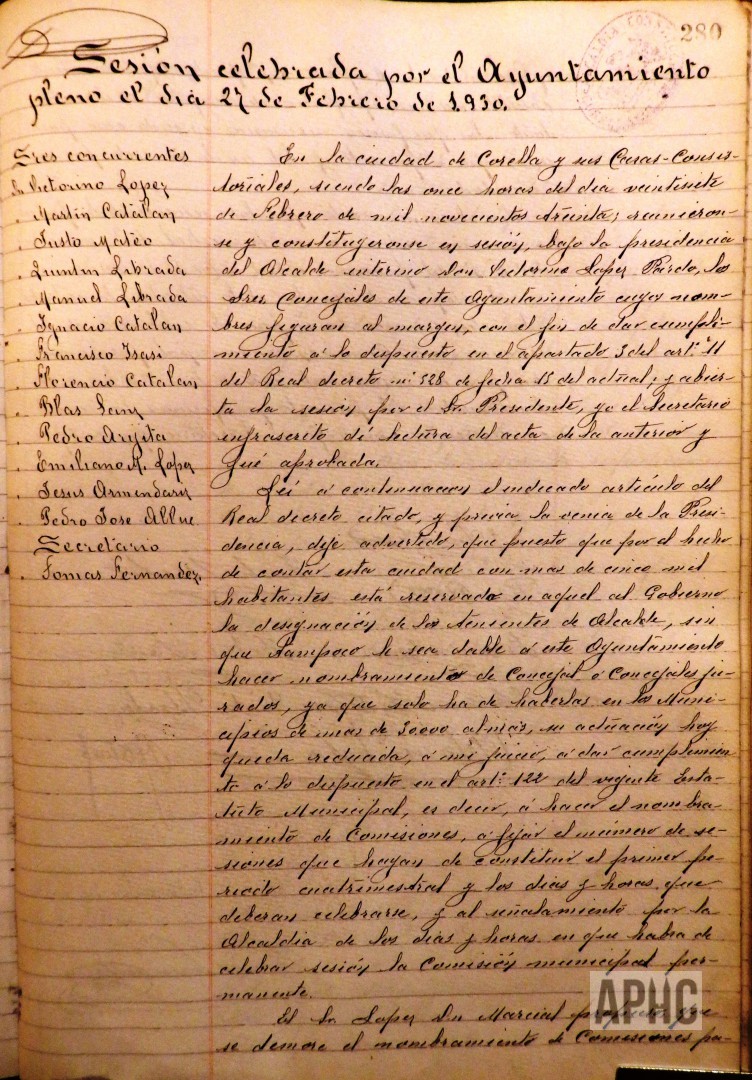 280
Sesión celebrada por el Ayuntamiento
pleno el dia 27 de Febrero de 1.930.
Sres concurrentes
Dn Victorino Lopez
" Martin Catalan
" Justo Mateo
" Quintin Librada
" Manuel Librada
" Ignacio Catalan
" Francisco Isasi
" Florencio Catalan
" Blas Sanz
" Pedro Arjita
" Emiliano M. Lopez
" Jesus Armendariz
" Pedro Jose Allue
Secretario
" Tomas Fernandez.
En la ciudad de Corella y sus Casas-Consis-
toriales, siendo las once horas del dia veintisiete
de Febrero de mil novecientos treinta; reunieron-
se y constituyeronse en sesión, bajo la presidencia
del Alcalde interino Don Victorino Lopez Pardo, los
Sres Concejales de este Ayuntamiento cuyos nom-
bres figuran al margen, con el fin de dar cumpli-
miento á lo dispuesto en el apartado 3 del artº 11
del Real decreto nº 528 de fecha 15 del actual; y abier-
ta la sesión por el Sr. Presidente, yo el Secretario
infrascrito dí lectura del acta de la anterior y
fué aprobada.
Leí á continuacion el indicado artículo del
Real decreto citado, y previa la venia de la Presi-
dencia, dejé advertido, que puesto que por el hecho
de contar esta ciudad con mas de cinco mil
habitantes está reservado en aquel al Gobierno
la designación de los tenientes de Alcalde, sin
que tampoco le sea dable á este Ayuntamiento
hacer nombramiento de Concejal ó Concejales ju-
rados, ya que solo ha de haberlas en los Muni-
cipios de mas de 30.000 almas, su actuación hoy
queda reducida, á mi juicio, á dar cumplimien
to á lo dispuesto en el artº 122 del vigente Esta-
tuto Municipal, es decir, á hacer el nombra-
miento de Comisiones, á fijar el número de se-
siones que hayan de constituir el primer pe-
riodo cuatrimestral y los dias y horas que
deberan celebrarse, y al señalamiento por la
Alcaldia de los dias y horas en que habra de
celebrar sesión la Comisión municipal per-
manente.
El Sr. Lopez Dn Marcial que
se demore el nombramiento de Comisiones pa-
APHC